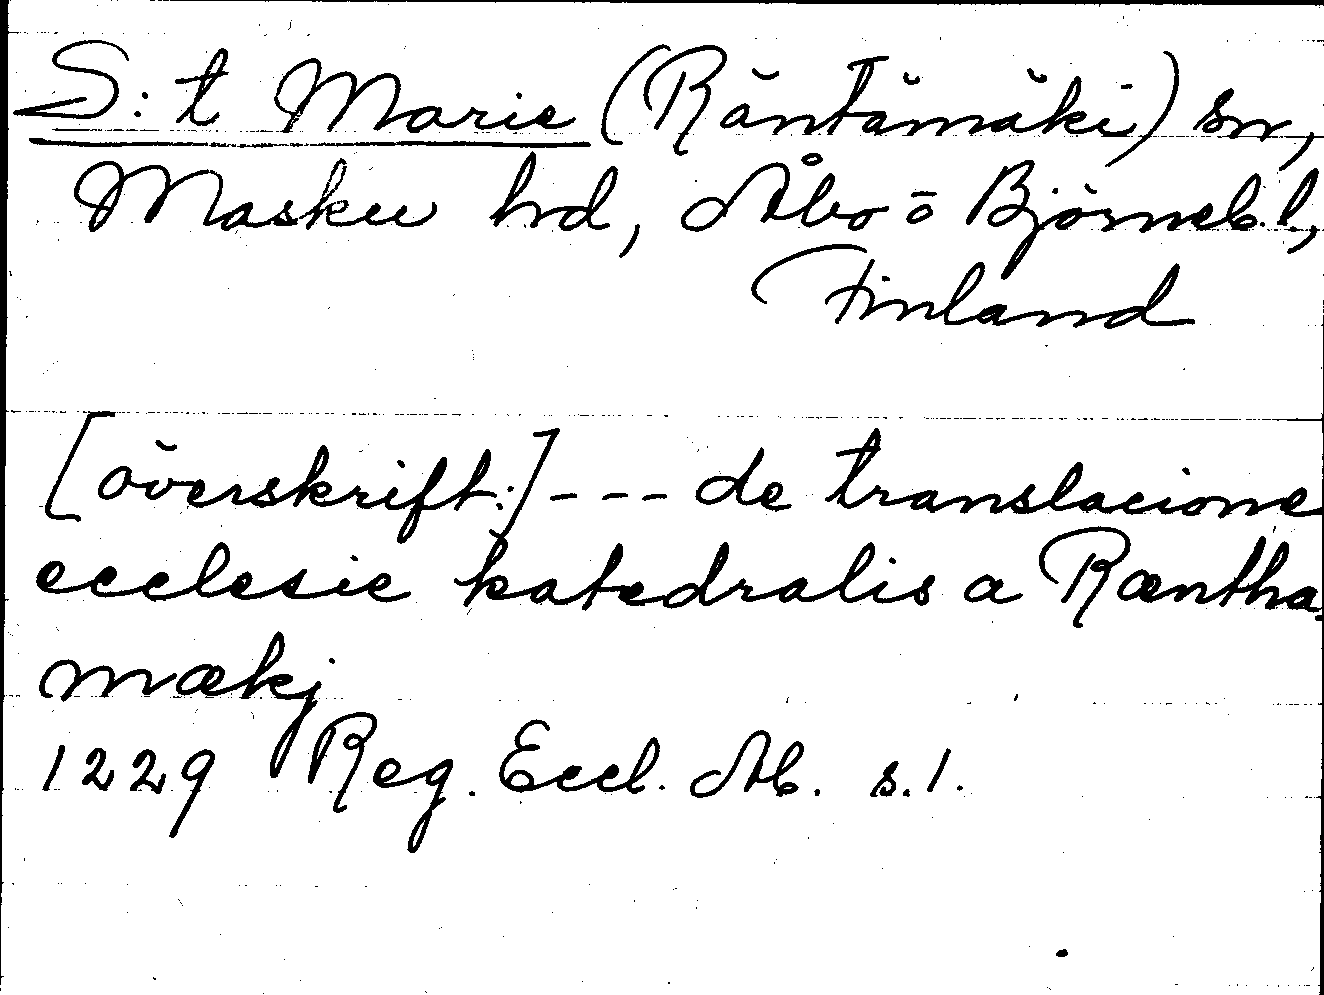 S:t Marie (Räntämäki) sn,
Masku hrd, Åbo o Björneb. l.,
Finland
[överskrift:] --- de translacione
ecclesie katedralis aRæntha-
mækj
1229 Reg. Eccl. Ab. s. 1.